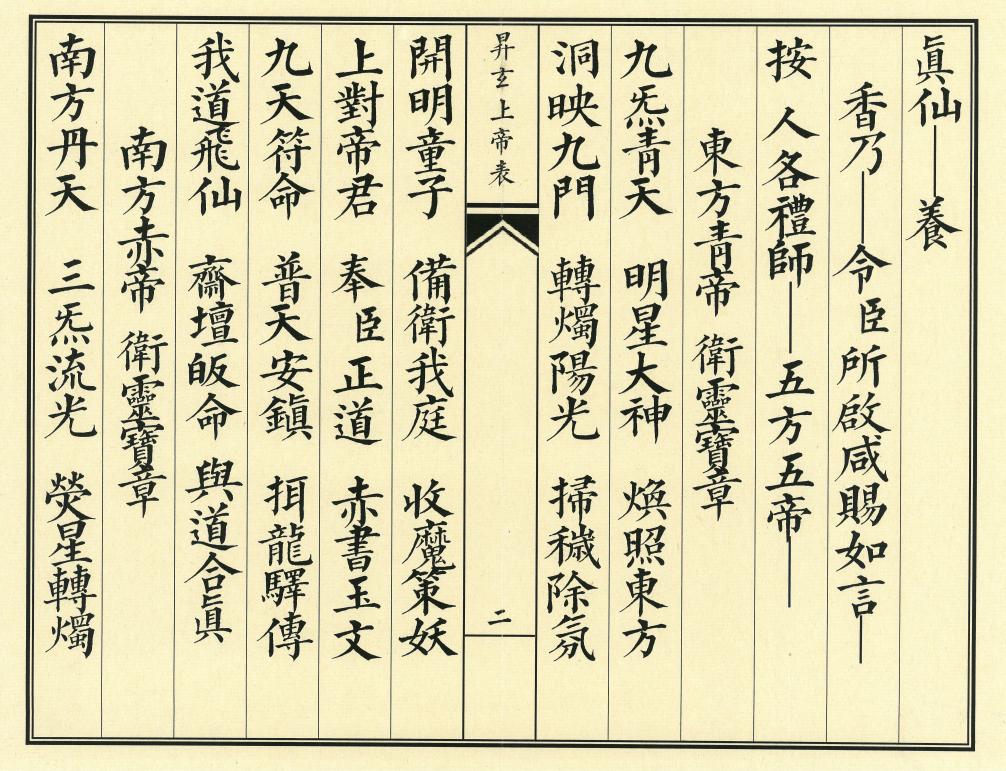 眞仙——養
香乃——令臣所啟咸賜如言——
按 人各禮師——五方五帝——
東方青帝 衛靈寶章
九炁青天 明星大神 煥照東方
洞映九門 轉燭陽光 掃穢除氛
昇玄上帝表 二
開明童子 備衛我庭 收魔策妖
上對帝君 奉臣正道 赤書玉文
九天符命 普天安鎮 㧕龍驛傳
我道飛仙 齋壇皈命 與道合眞
南方赤帝 衛靈寶章
南方丹天 三炁流光 熒星轉燭